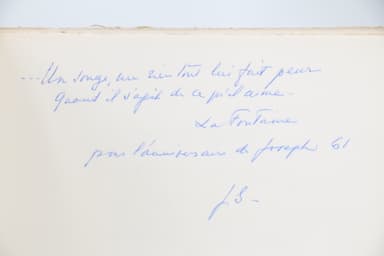 ...Un songe, un rien tout lui fait peur
Quand il s'agit de ce qu'il aime.
La Fontaine
pour l'anniversaire de Joseph 61
J S -